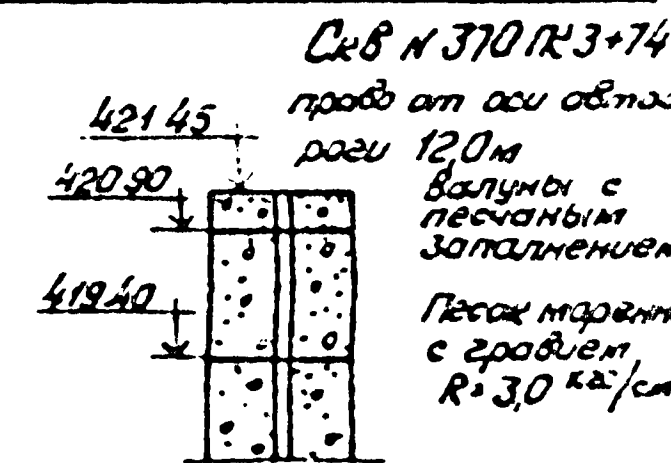 Скв N 370 ПК 3+74
право от оси автод
роги 12,0м
421 45
420 90
419 40
валуны с
песчаным
заполнением
Песок морен
с гравием
R= 3,0 кг/см